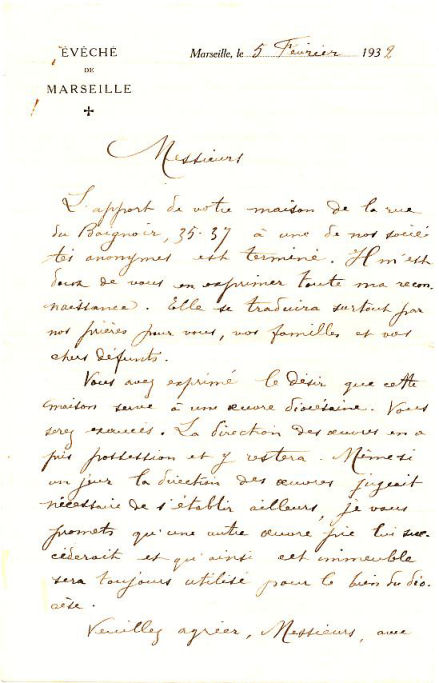 ÉVÊCHÉ
DE
MARSEILLE
Marseille, le 5 Février 1932
Messieurs
L'apport de votre maison de la rue
du Baignoir, 35-37 à une de nos socié
tés anonymes est terminé. Il m'est
doux de vous en exprimer toute ma recon
naissance. Elle se traduira surtout par
nos prières pour vous, vos familles et vos
chers défunts.
Vous avez exprimé le désir que cette
maison serve à une œuvre diocésaine. Vous
serez exaucés. La direction des œuvres en a
pris possession et y restera. Même si
un jour la direction des œuvres jugeait
nécessaire de s'établir ailleurs, je vous
promets qu'une autre œuvre pie lui suc
cèderait et qu'ainsi cet immeuble
sera toujours utilisé pour le bien du dio
cèse.
Veuillez agréer, Messieurs, avec